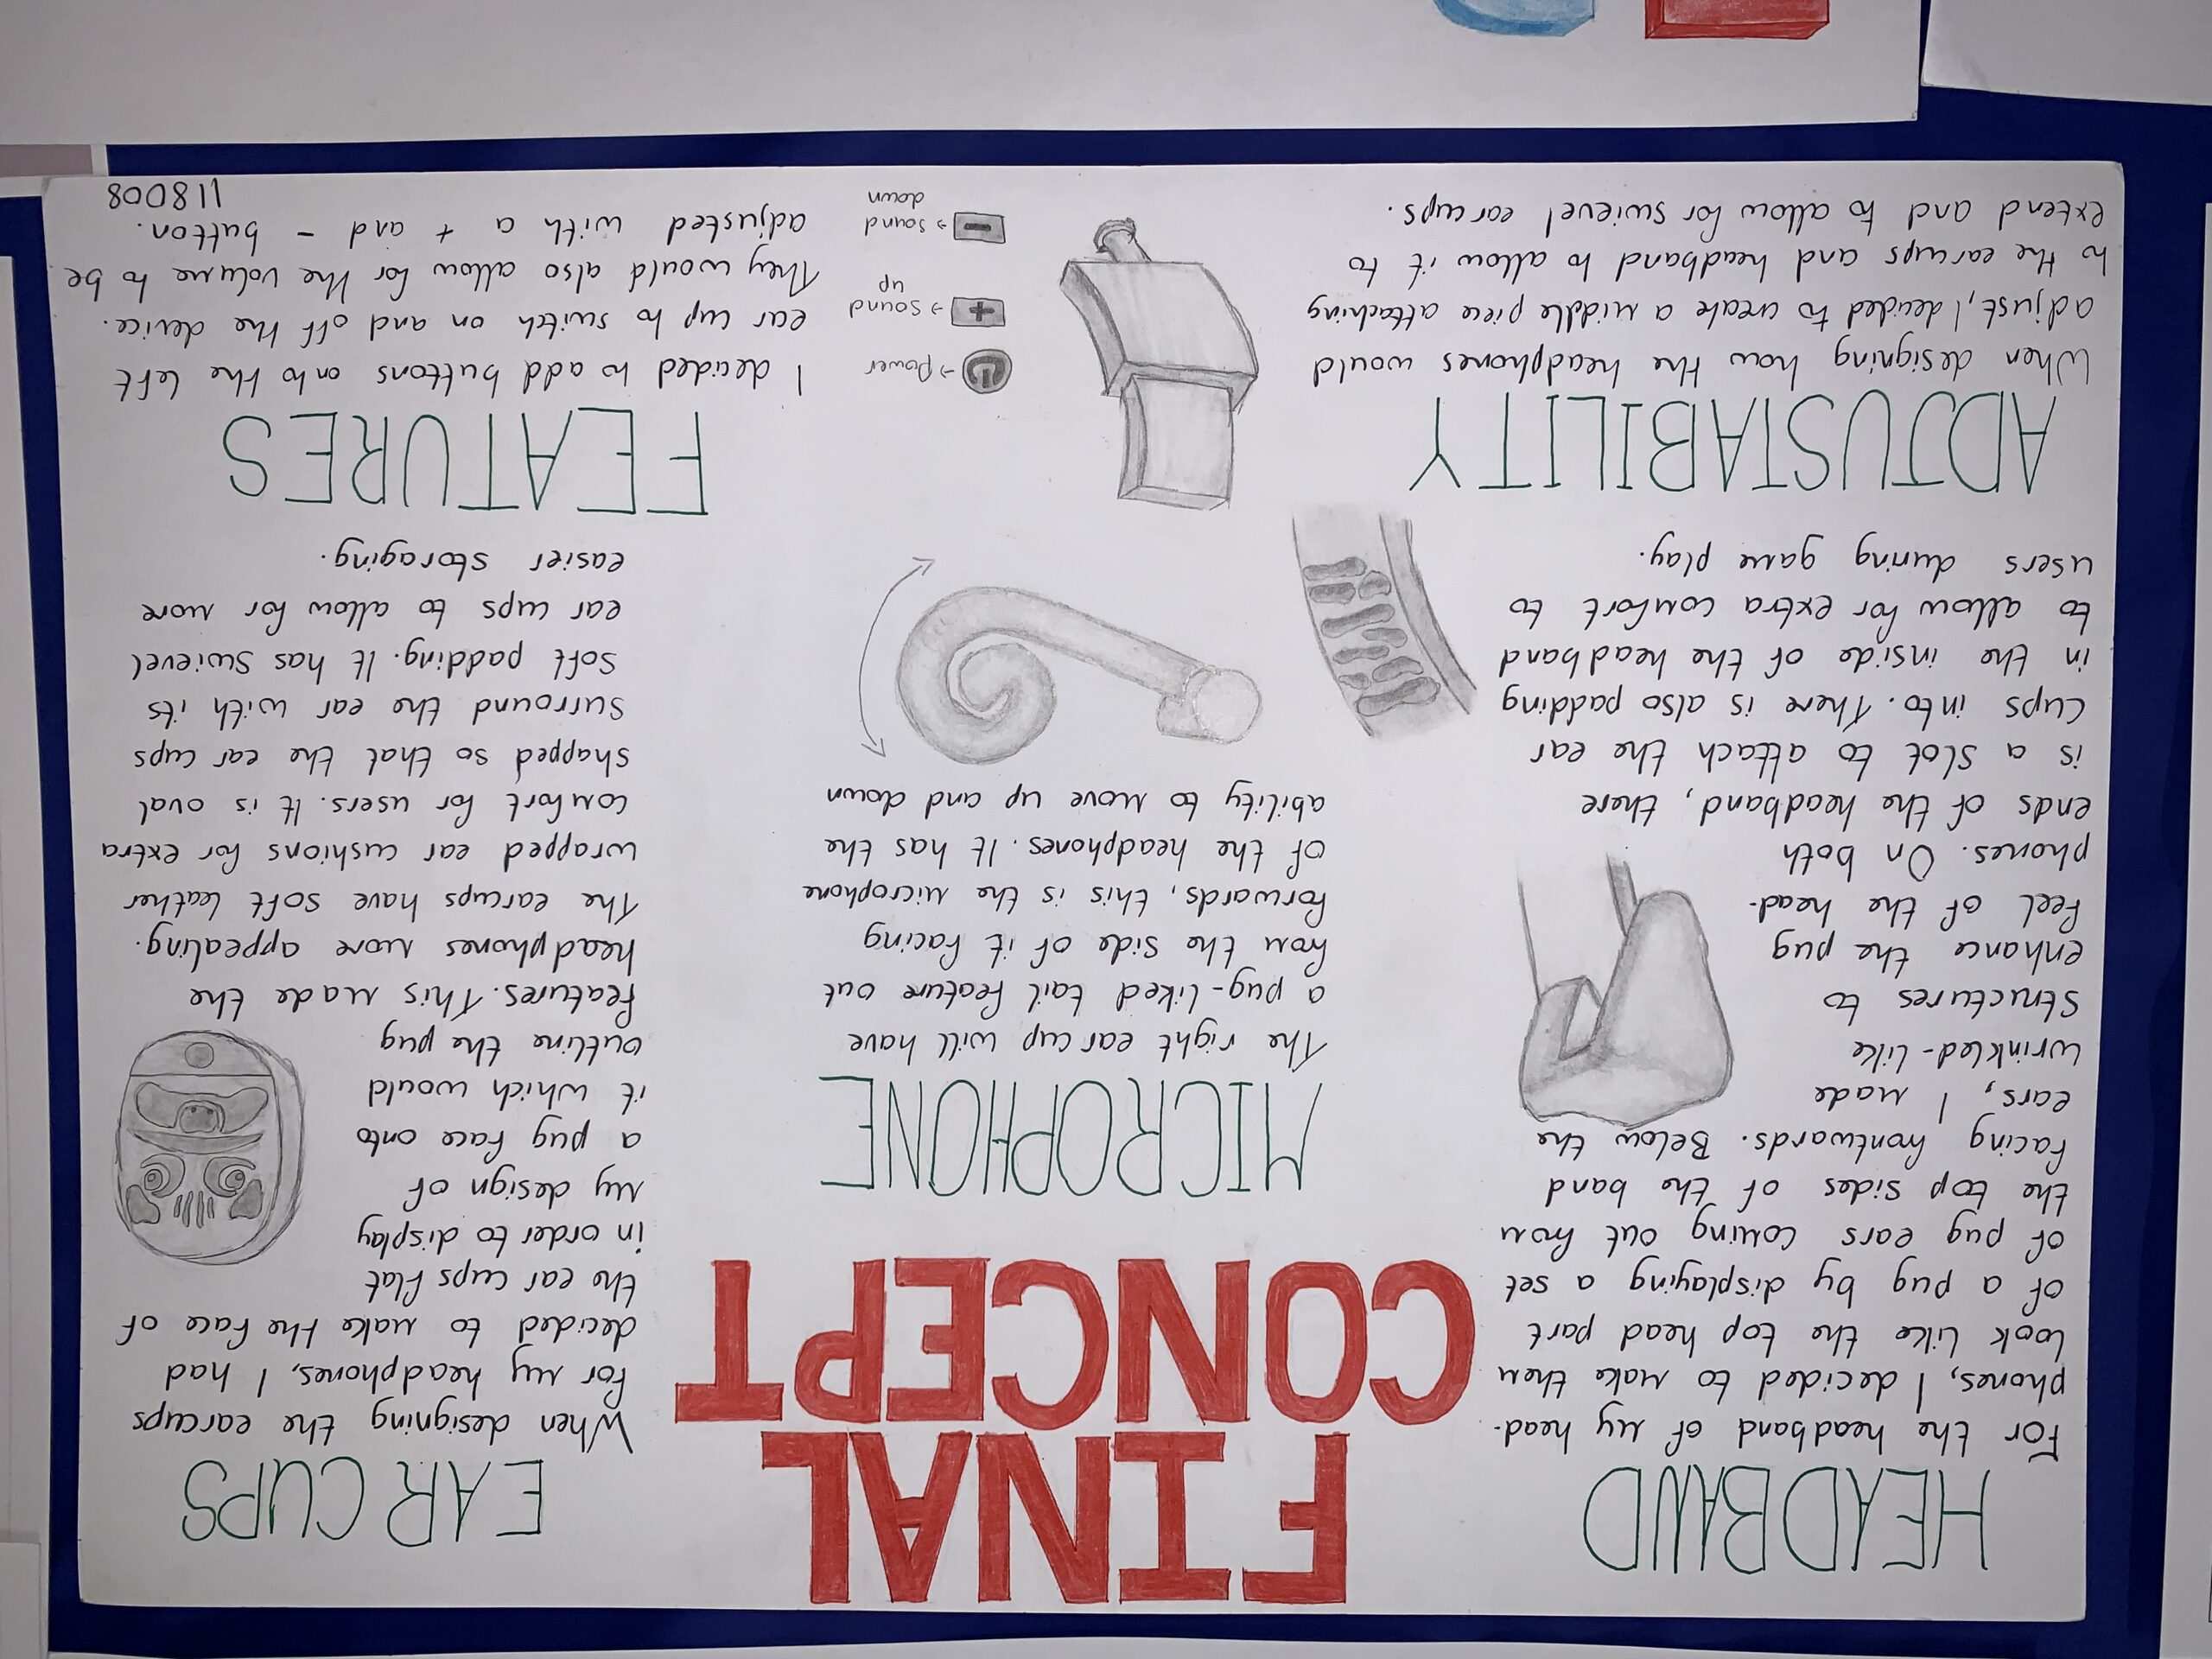 FINAL
CONCEPT
HEADBAND
For the headband of my head-
phones, I decided to make them
look like the top head part
of a pug by displaying a set
of pug ears coming out from
the top sides of the band
facing frontwards. Below the
ears, I made
wrinkled-like
structures to
enhance the pug
feel of the head-
phones. On both
ends of the headband, there
is a slot to attach the ear
cups into. There is also padding
in the inside of the headband
to allow for extra comfort to
users during game play.
ADJUSTABILITY
When designing how the headphones would
adjust, I decided to create a middle piece attaching
to the earcups and headband to allow it to
extend and to allow for swievel earcups.
MICROPHONE
The right earcup will have
a pug-liked tail feature out
from the side of it facing
forwards, this is the microphone
of the headphones. It has the
ability to move up and down
EAR CUPS
When designing the earcups
for my headphones, I had
decided to make the face of
the ear cups flat
in order to display
my design of
a pug face onto
it which would
outline the pug
features. This made the
headphones more appealing.
The earcups have soft leather
wrapped ear cushions for extra
comfort for users. It is oval
shapped so that the ear cups
surround the ear with its
soft padding. It has swievel
ear cups to allow for more
easier storaging.
FEATURES
I decided to add buttons onto the left
ear cup to switch on and off the device.
They would also allow for the volume to be
adjusted with a + and - button.
→ Power
+ → sound
up
- → sound
down
118008